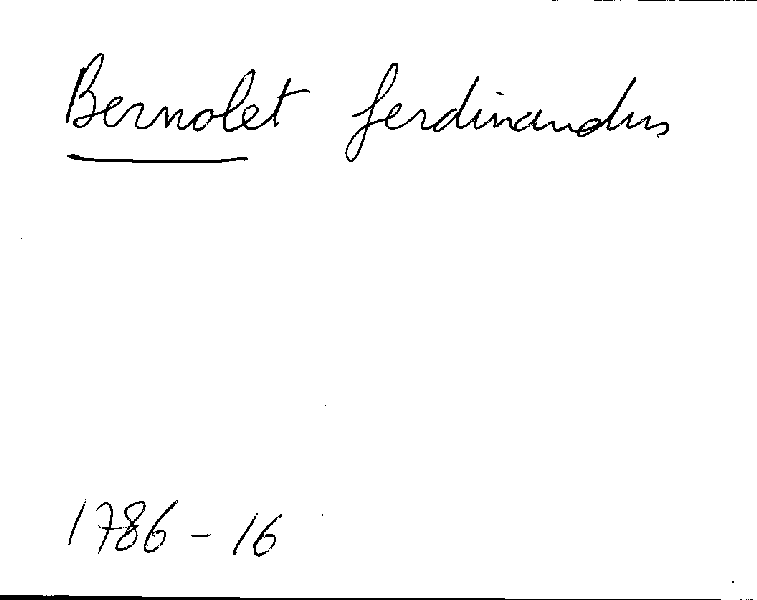 Bernolet ferdinandus
1786 - 16